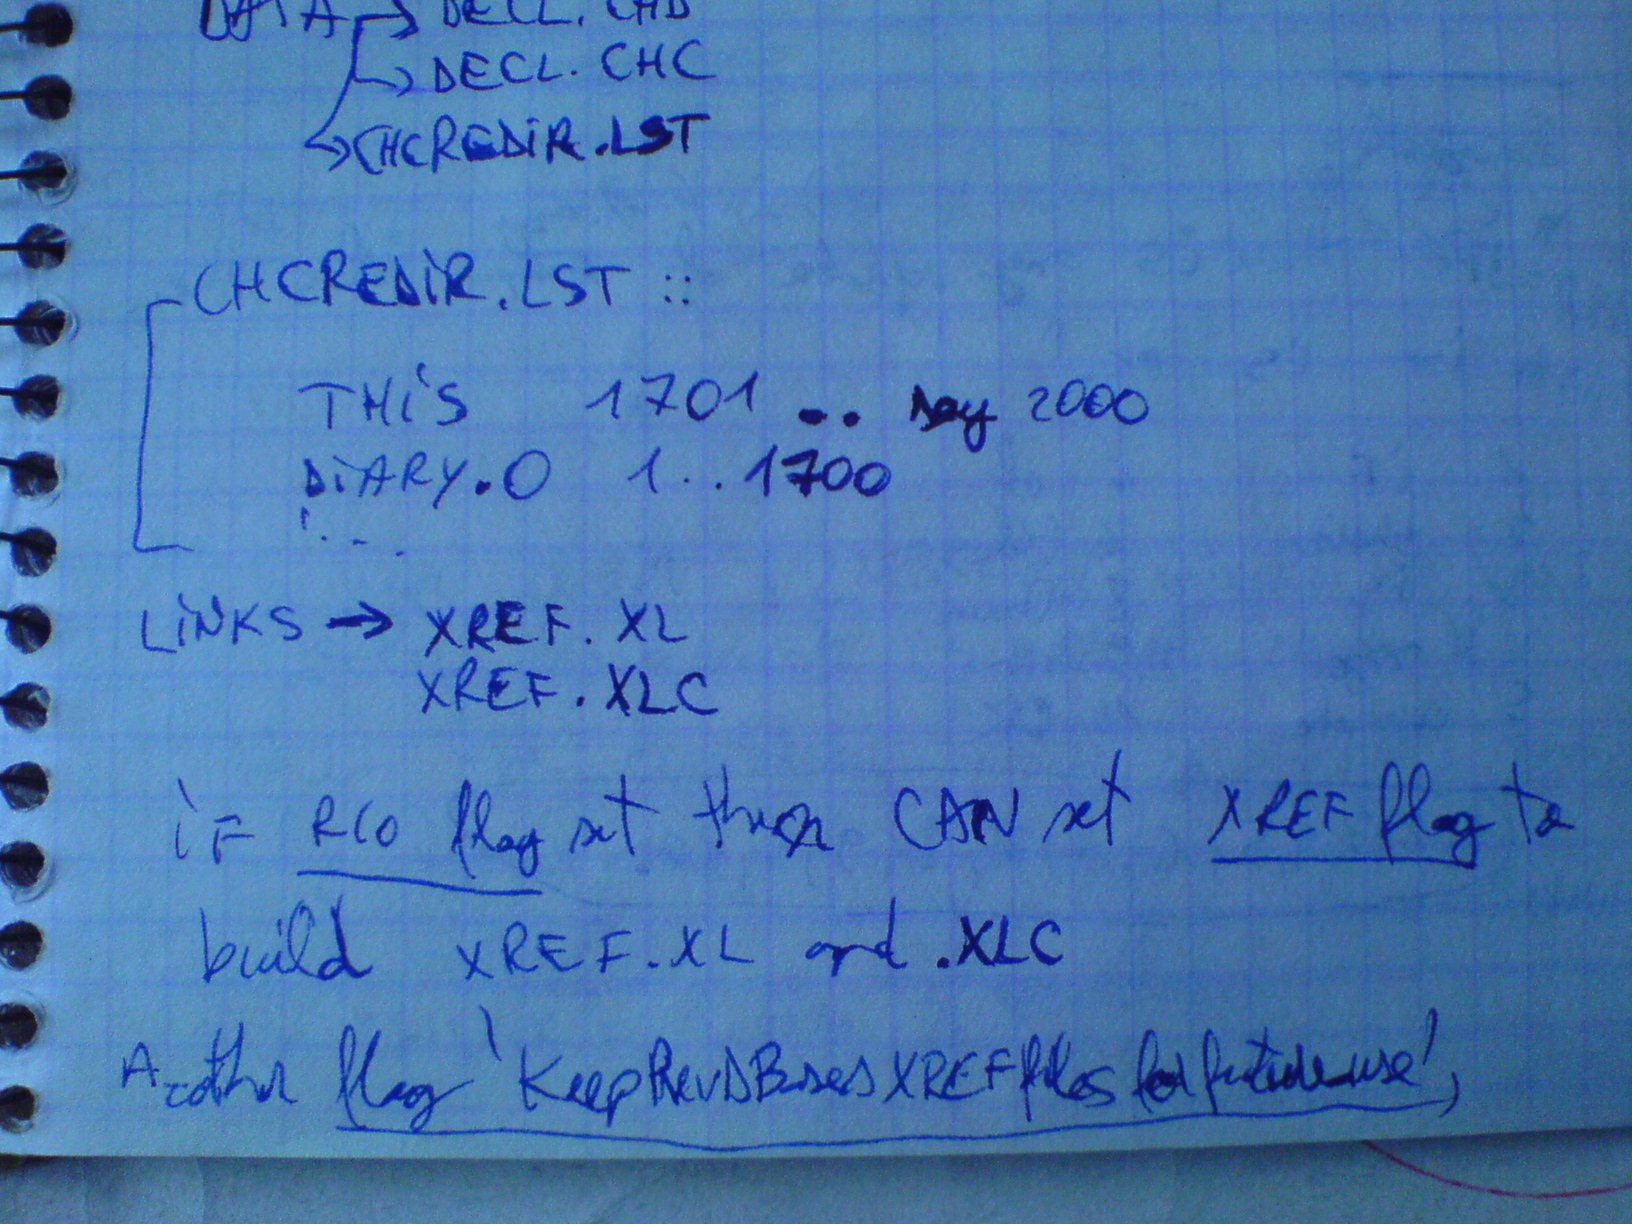 DATA → DECL. CHD
→ DECL. CHC
→ CHCREDiR.LST
CHCREDiR.LST ::
THiS 1701 .. 2000
DiARY.0 1..1700
LiNKS → XREF. XL
XREF. XLC
iF RCO flag set then CAN set XREF flag to
build XREF.XL and .XLC
Another flag 'KeepPrevDBasesXREFfilesforfutureuse',